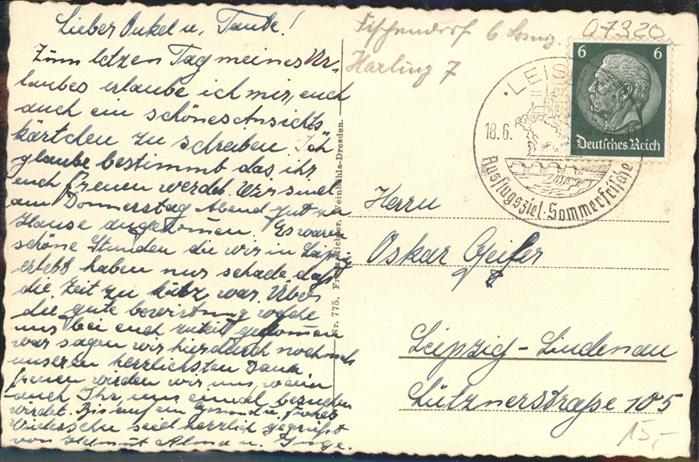 Lieber Onkel u. Tante!
Zum letzen Tag meines Ur-
laubes erlaube ich mir, euch
auch ein schönes Ansichts
kärtchen zu schreiben. Ich
glaube bestimmt das ihr
euch freuen werdet. Wir sind
am Donnerstag Abend gut zu
Hause angekommen. Es waren
schöne Stunden die wir in
erlebt haben nur schade daß
die Zeit zu kurz war. Über
die gute bewirtung welche
uns bei euch zuteil gekommen
war sagen wir hierdurch nochmals
unseren herrlichsten Dank
freuen würden wir uns, wenn
auch Ihr, uns einmal besuchen
würdet. Bis auf ein Gesund u. frohes
Wiedersehn seid herrlich gegrüßt
von Helmut u. Inge.
Nr. 775. Weinböhla-Dresden.
Fischendorf b Leisnig.
Harling 7
07320
LEIS
18.6.
Ausflugsziel. Sommerfrische
6 6
Deutsches Reich
Herrn
Oskar
Leipzig-Lindenau
Lütznerstraße 105
15,-